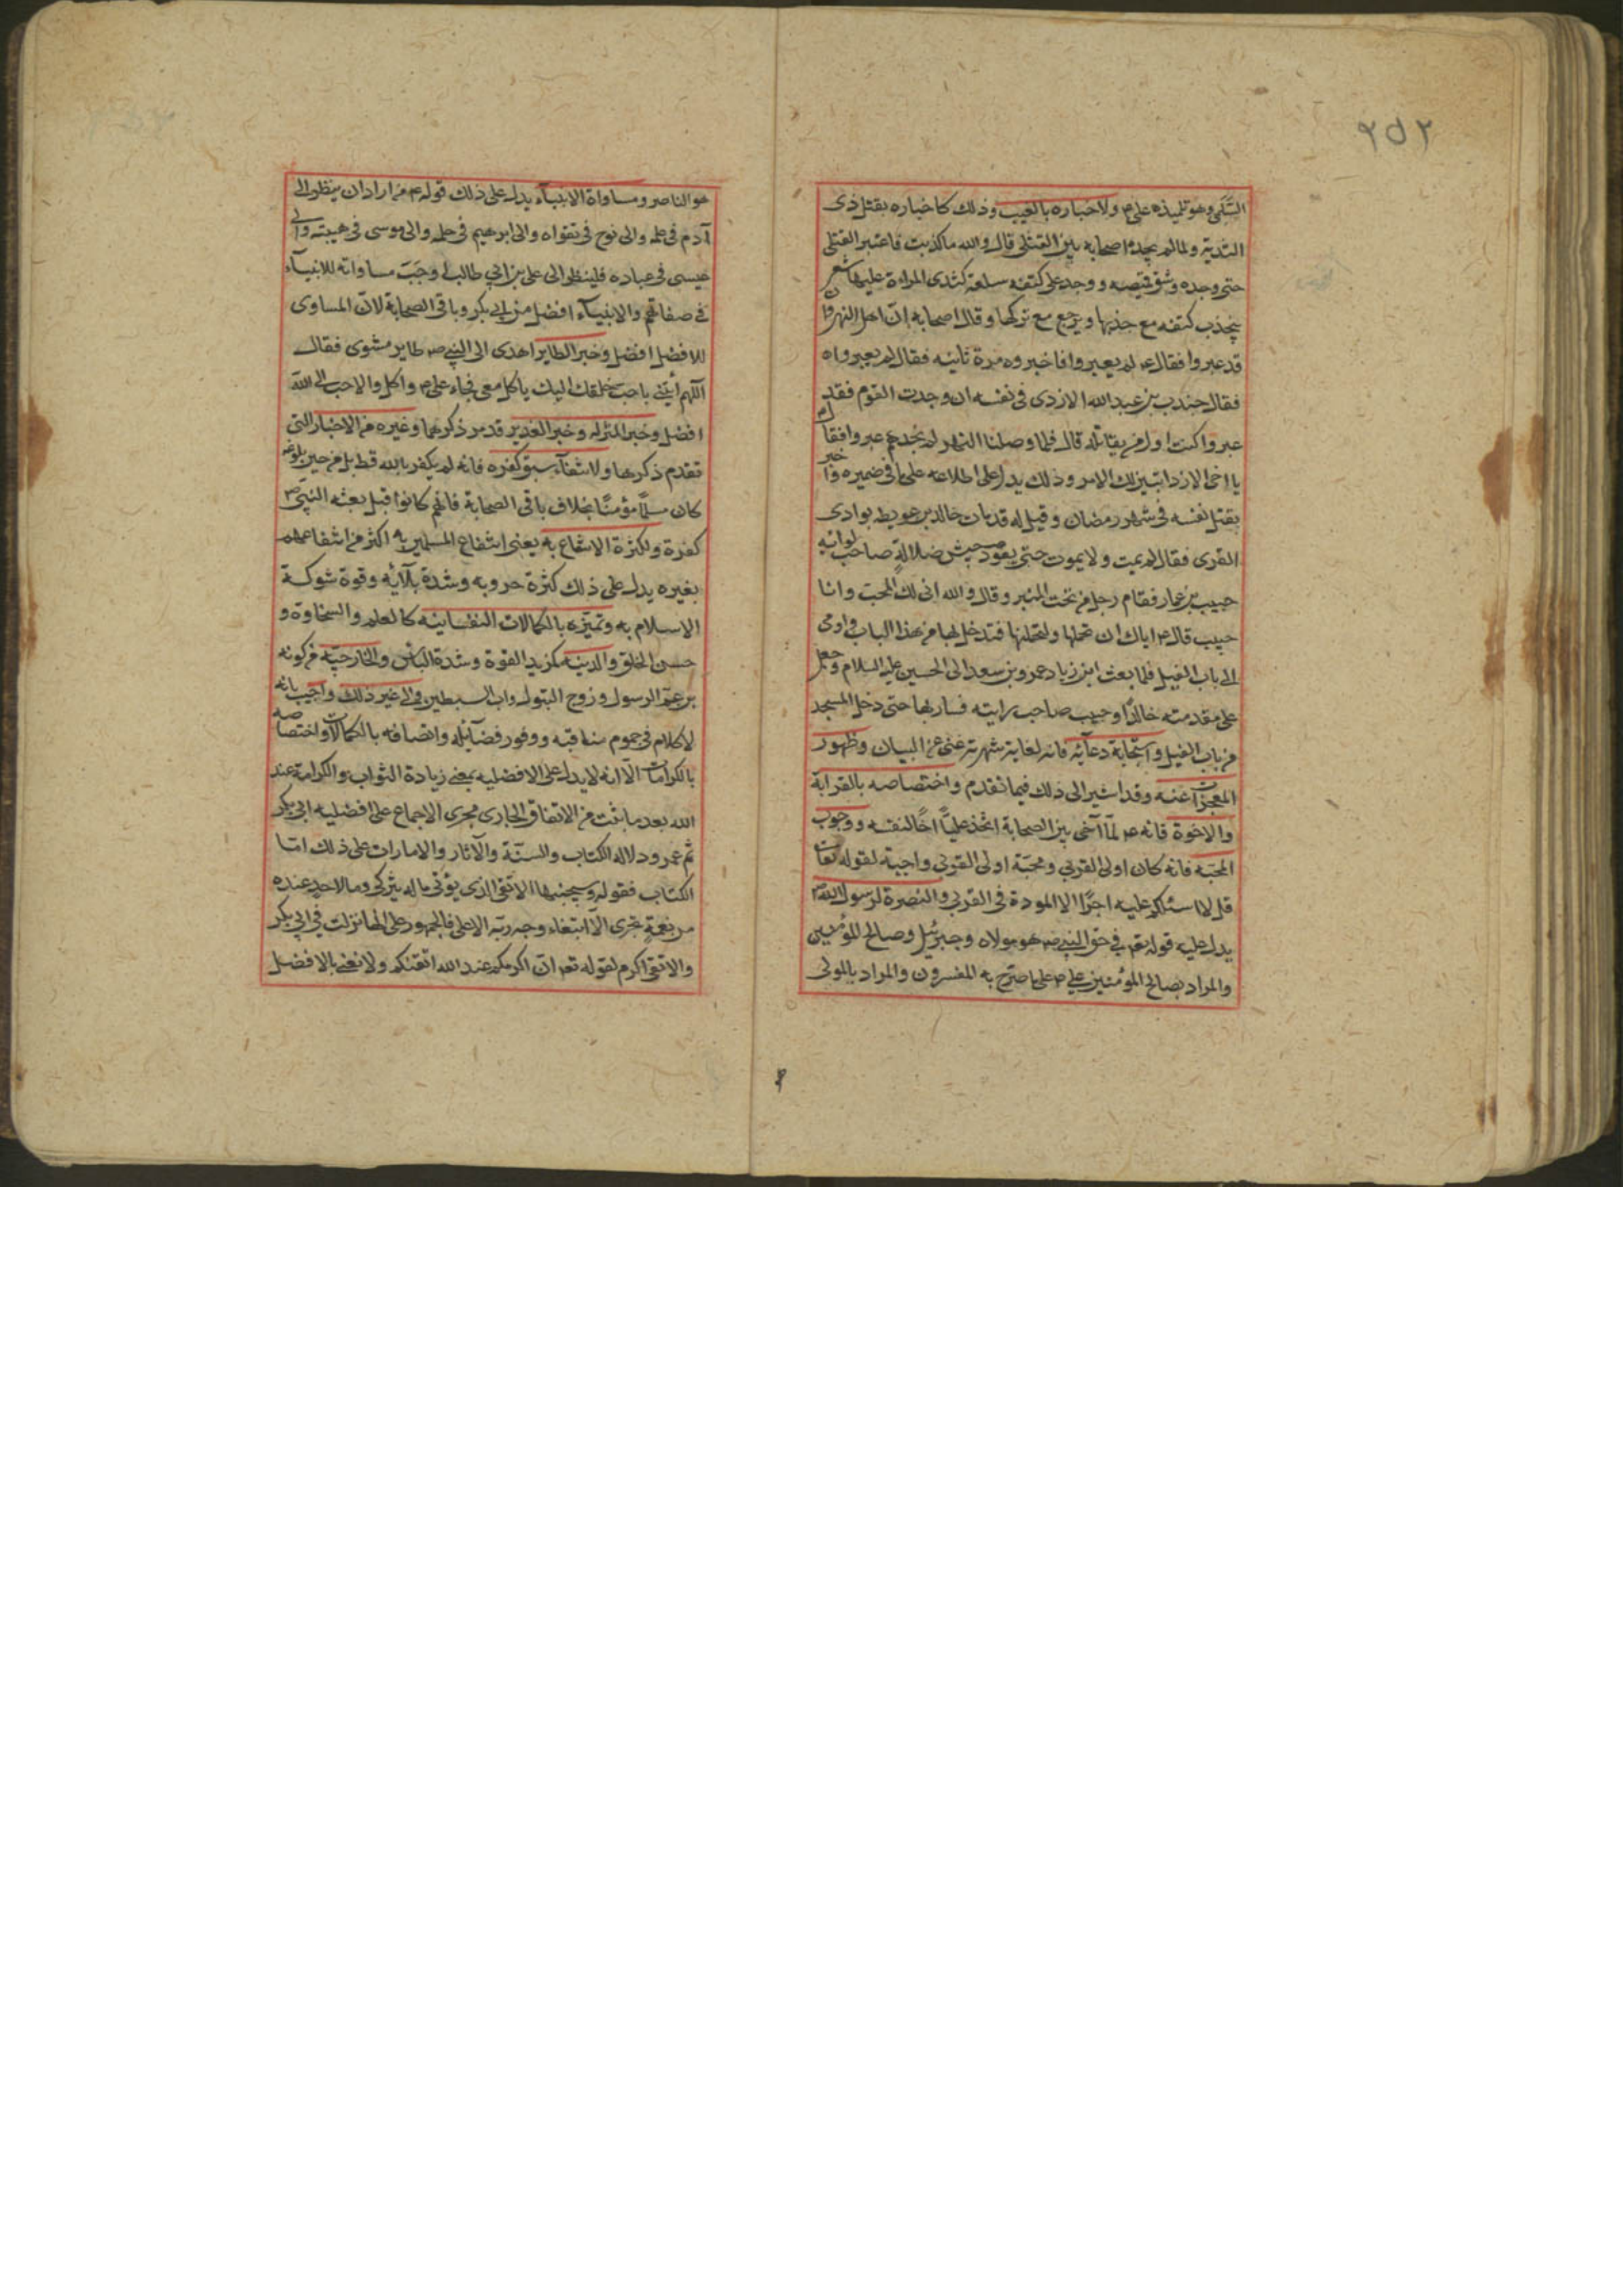 ٢٥٢
السلمى وهو تلميذه على م ولاخباره بالغيب وذلك كاخباره بقتل ذى
الثدية ولما لم يجده اصحابه بين القتلى قال والله ما كذبت فاعتبر القتلى
حتى وجده وشق قميصه ووجد على كتفه سلعة كثدى المراءة عليها شعر
ينجذب كتفه مع جذبها ويرجع مع تركها وقال اصحابه ان اهل النهروان
قد عبروا فقال عم لم يعبروا فاخبروه مرة ثانيه فقال لم يعبرواه
فقال جندب بن عبد الله الازدى فى نفسه ان وجدت القوم فقد
عبروا كنت اول من يقاتله قال فلما وصلنا النهر لم نجدهم عبروا فقال
يا اخى الازد اتبين لك الامر وذلك يدل على اطلاعه على ما فى ضميره واخبر
بقتل نفسه فى شهر رمضان وقيل له قد مات خالد بن عويطه بوادى
القرى فقال لم يمت ولا يموت حتى يقود جيش ضلالة صاحب لوائه
حبيب بن عمار فقام رجل من تحت المنبر وقال والله انى لك لمحب وانا
حبيب قال م اياك ان تحملها ولتحملنها فتدخل بها من هذا الباب واومى
الى باب الفيل فلما بعث ابن زياد عمرو بن سعد الى الحسين عليه السلام وجعل
على مقدمته خالدًا وحبيب صاحب رايته فسار بها حتى دخل المسجد
من باب الفيل واستجابة دعآئه فانه لغاية شهرته غنى عن البيان وظهور
المعجزات عنه وقد اشير الى ذلك فيما تقدم واختصاصه بالقرابة
والاخوة فانه عم لمّا آخى بين الصحابة اتخذ عليًّا اخًا لنفسه ووجوب
المحبّه فانه كان اولى القربي ومحبّة اولى القربى واجبة لقوله تعالى
قل لا اسئلكم عليه اجرًا الا المودة فى القربى والنصرة لرسول الله ص
يدل عليه قوله تعم فى حق النبى ص هو مولاه وجبرئيل وصالح المؤمنين
والمراد بصالح المؤمنين على م على ما صرّح به المفسرون والمراد بالمولى
هو الناصر ومساواة الانبياء يدل على ذلك قوله م من اراد ان ينظر الى
آدم فى علمه والى نوح فى تقواه والى ابرهيم فى حلمه والى موسى فى هيبته والى
عيسى فى عباده فلينظر الى على بن ابي طالب وجبت مساواته للانبيآء
فى صفاتهم والانبيآء افضل من ابى بكر وباقى الصحابة لانّ المساوى
للافضل افضل وخبر الطاير اهدى الى النبي ص طاير مشوى فقال
اللّهم ايتنى باحب خلقك اليك ياكل معى فجاء على م واكل والاحب الى الله
افضل وخبر المنزله وخبر الغدير قد مر ذكرهما وغيره من الاخبار التى
تقدم ذكرها ولانتفآء سبق كفره فانه لم يكفر بالله قط بل من حين بلوغه
كان مسلمًا مؤمنًا بخلاف باقى الصحابة فانهم كانوا قبل بعثه النبى ص
كفرة ولكثرة الانتفاع به يعنى انتفاع المسلمين به اكثر من انتفاعهم
بغيره يدل على ذلك كثرة حروبه وشدة بلآئه وقوة شوكة
الاسلام به وتميّزه بالكمالات النفسانيه كالعلم والسخاوة و
حسن الخلق والدينيه كمزيد القوة وشدة الباس والخارجيّه من كونه
بن عمّ الرسول وزوج البتول واب السبطين الى غير ذلك واجيب بانه
لا كلام فى عموم مناقبه ووفور فضآئله واتصافه بالكمالات واختصاصه
بالكرامات الّا انه لا يدل على الافضليه بمعنى زيادة الثواب والكرامة عند
الله بعد ما ثبت من الاتفاق الجارى مجرى الاجماع على افضليه ابى بكر
ثم عمر ودلاله الكتاب والسنّة والآثار والامارات على ذلك امّا
الكتاب فقوله وسيجنبها الاتقى الذى يؤتى ماله يتزكى وما لاحد عنده
من نعمة تجزى الّا ابتغاء وجه ربّه الاعلى فالجمهور على انها نزلت فى ابى بكر
والاتقى اكرم لقوله تعم انّ اكرمكم عند الله اتقيكم ولا نعنى بالافضل